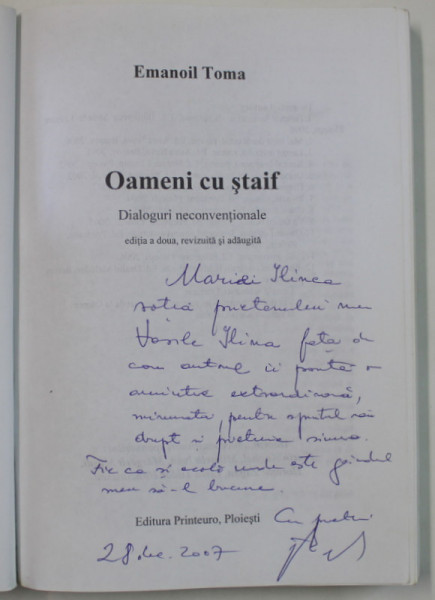 Emanoil Toma
Oameni cu ştaif
Dialoguri neconvenţionale
ediţia a doua, revizuită şi adăugită
Ilinca
soţia prietenului meu
Vasile Ilinca faţă de
care autorul îi poartă o
amintire extraordinară,
minunată, pentru spiritul său
drept şi prietenia
Fie ca şi acolo unde este gândul
meu să-l bucure.
Editura Printeuro, Ploieşti
Cu
28 dec. 2007